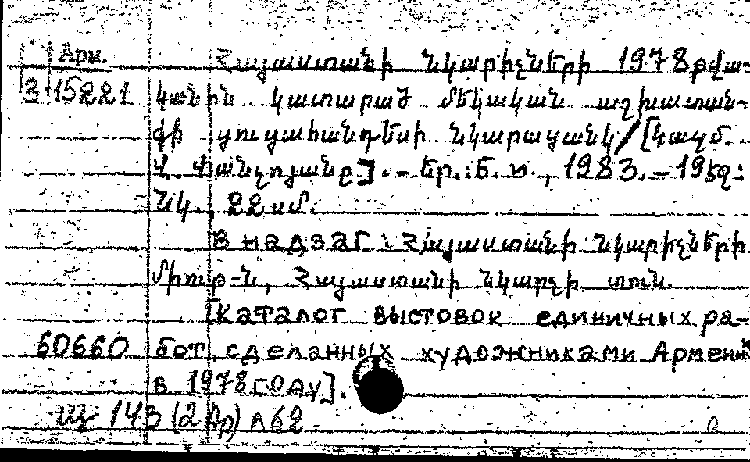 Арм.
Հայաստանի նկարիչների 1978 թվա-
3-15221 կանին կատարած մեկական աշխատան-
քի ցուցահանդեսի նկարացանկ/[Կազմ.
Փանջոյանը]. - Եր.: Б. и., 1983. - 19 էջ:
նկ., 22 սմ.
В надзаг.: Հայաստանի նկարիչների
միութ-ն, Հայաստանի նկարչի տուն.
[Каталог выставок единичных ра-
60660 бот, сделанных художниками Армении
в 1978 году].
143 (2 Ар) л 62